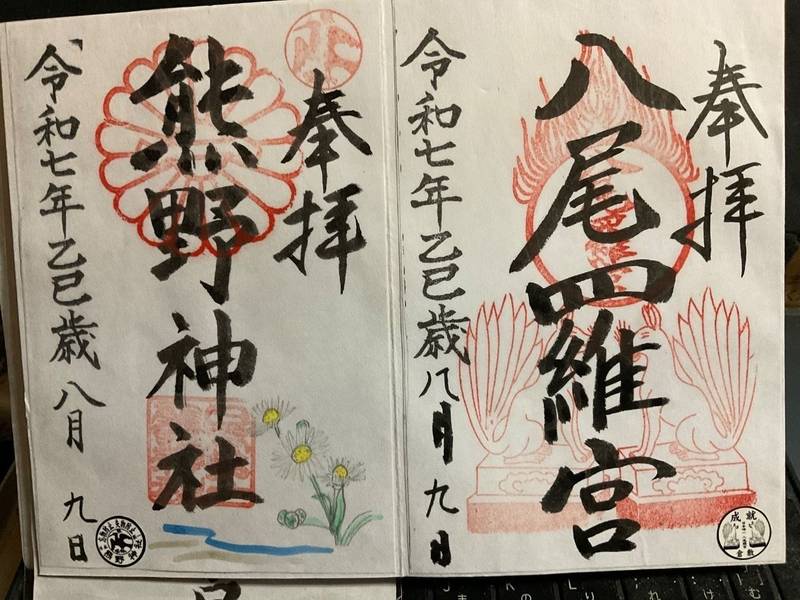 奉拝
八尾羅宮
令和七年乙巳歳八月九日
成就
倉敷
奉拝
熊野神社
令和七年乙巳歳八月九日